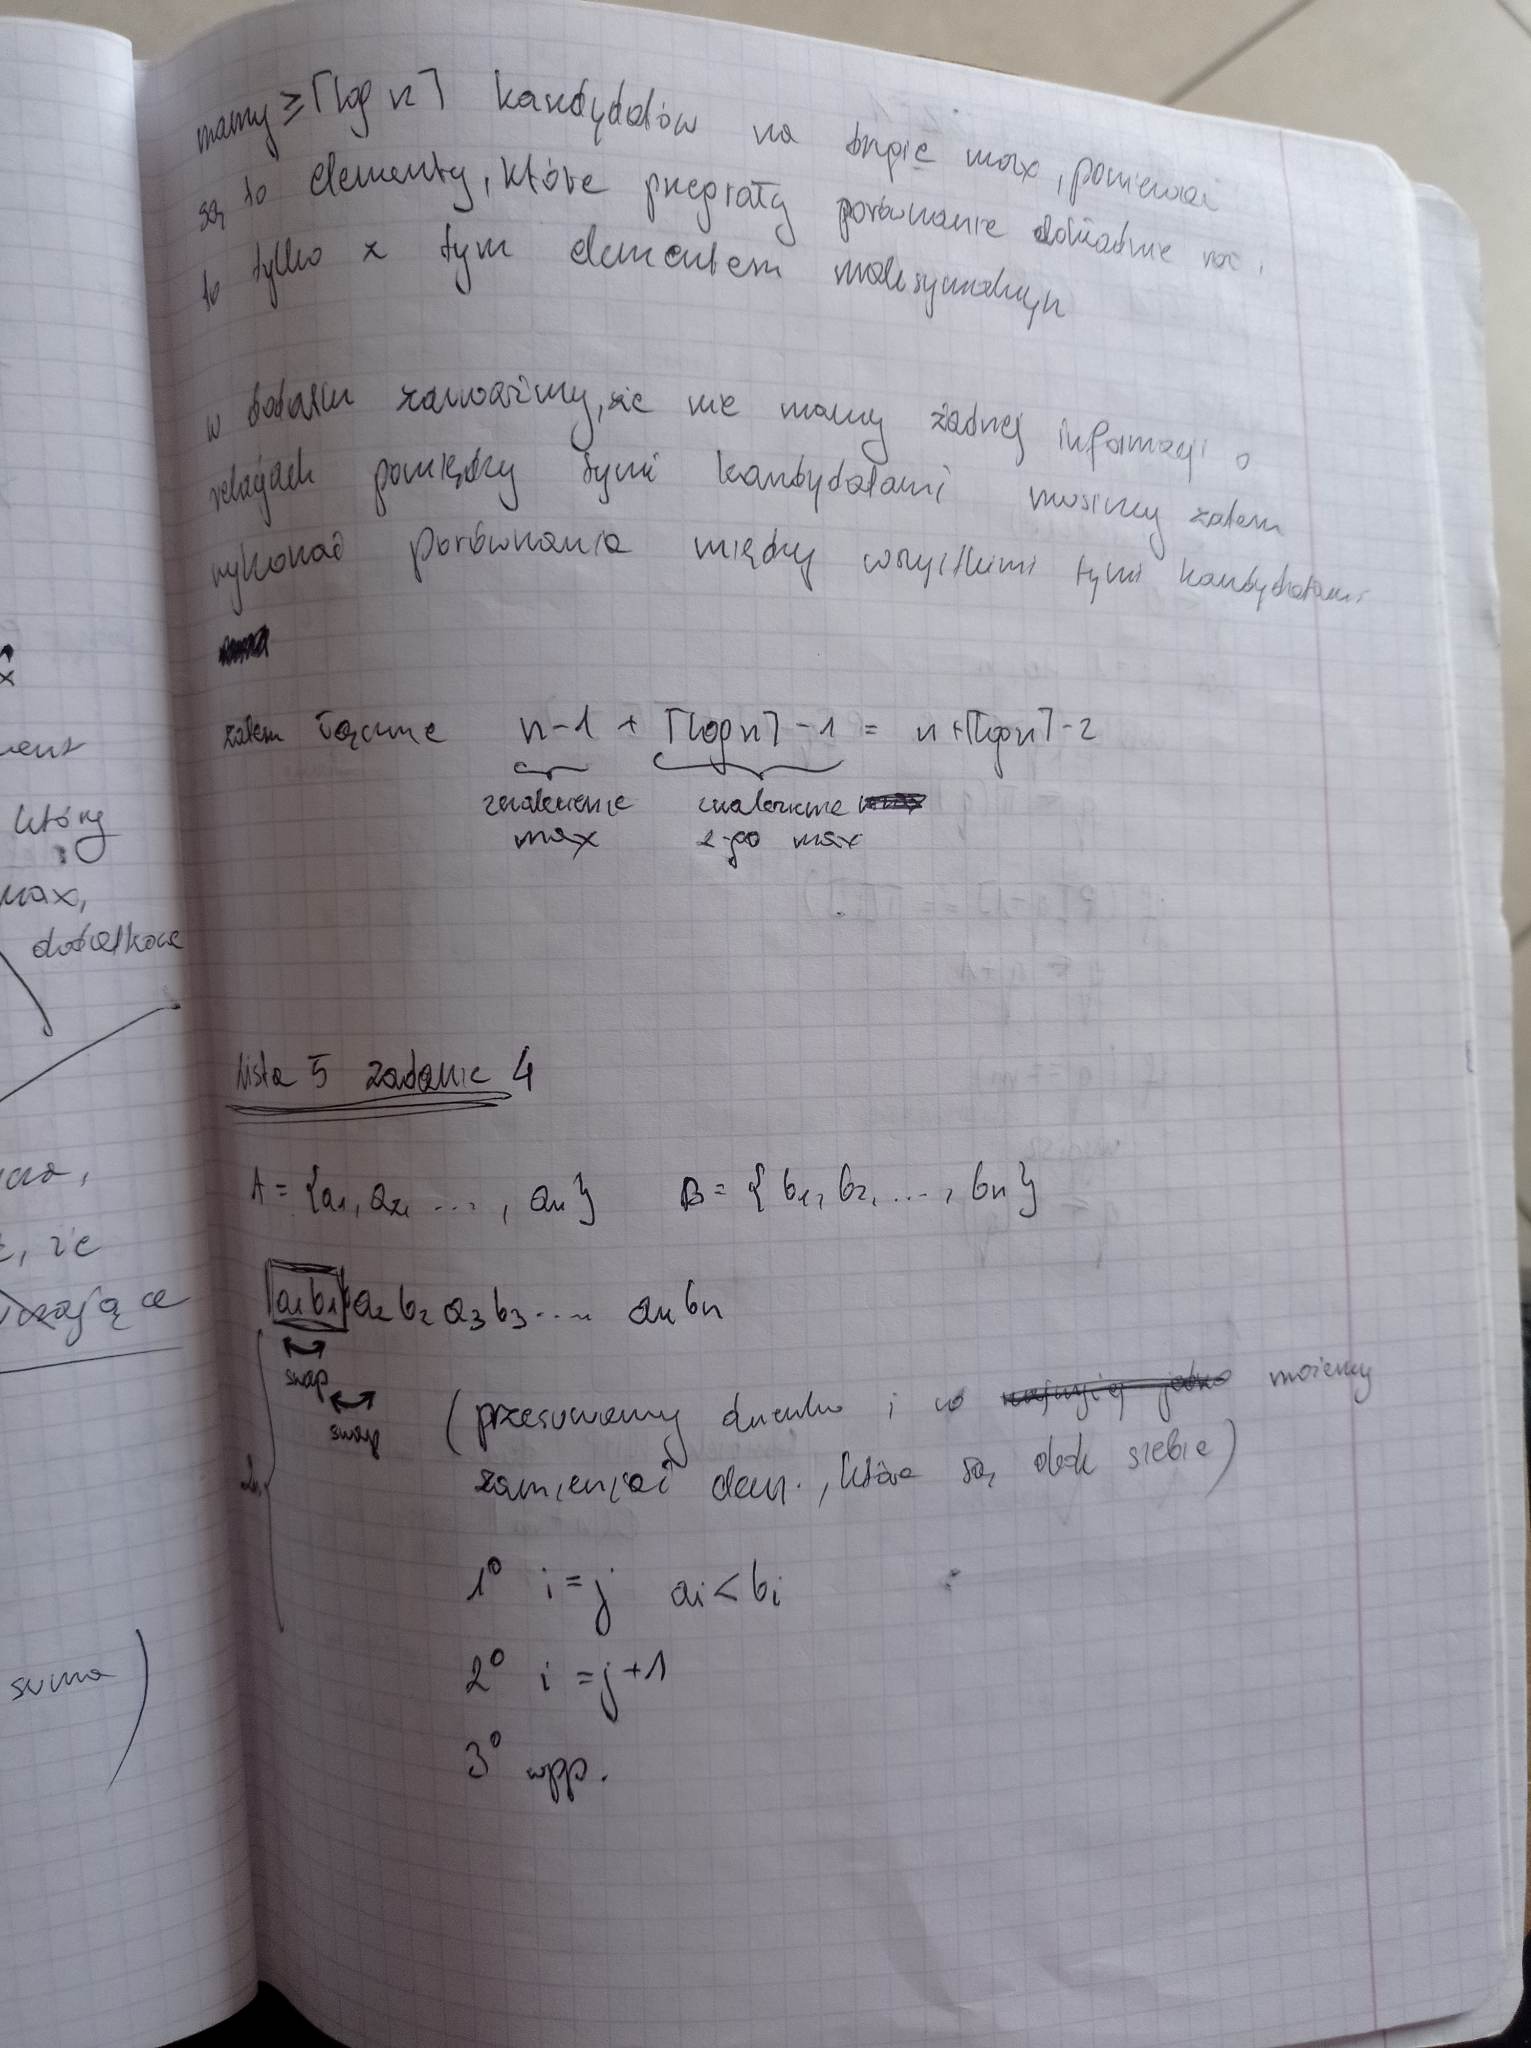 mamy ≥ ⌈log n⌉ kandydatów na drugie max, ponieważ
są to elementy, które przegrały porównanie dokładnie raz i
to tylko z tym elementem maksymalnym
w dodatku zauważmy, że nie mamy żadnej informacji o
relacjach pomiędzy tymi kandydatami musimy zatem
wykonać porównania między wszystkimi tymi kandydatami
zatem łącznie n-1 + ⌈log n⌉ - 1 = n + ⌈log n⌉ - 2
znalezienie max
znalezienie 2-go max
Lista 5 zadanie 4
A = {a1, a2, ..., an} B = {b1, b2, ..., bn}
a1 b1 a2 b2 a3 b3 .... an bn
swap
swap
(przesuwamy i możemy
zamieniać elem., które są obok siebie)
1° i = j ai < bi
2° i = j+1
3° wpp.
który
max,
dodatkowe
, że
suma)